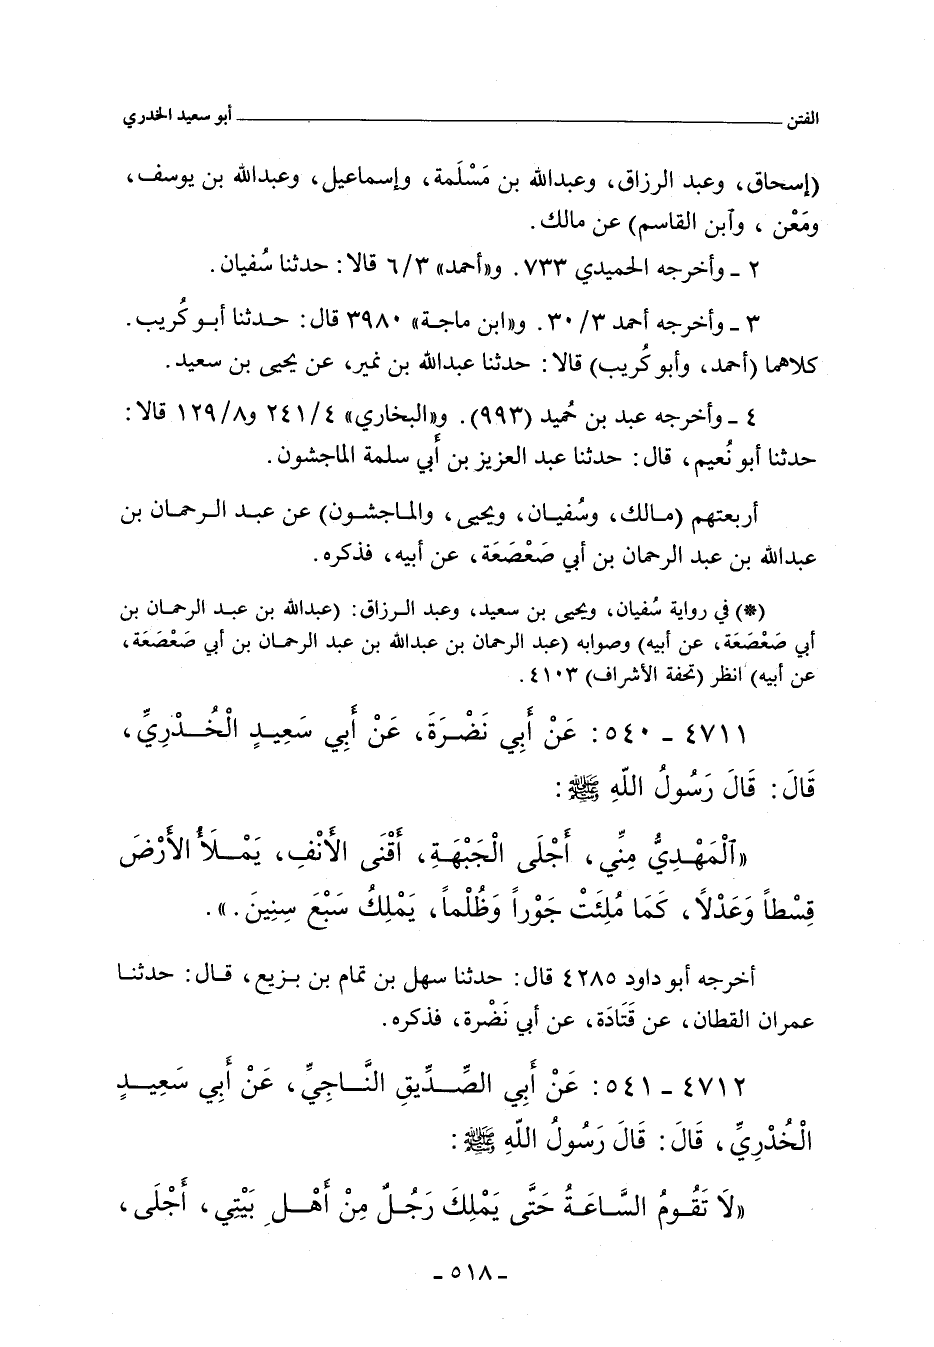 الفتن ــــــــــ أبو سعيد الخدري
(إسحاق، وعبد الرزاق، وعبدالله بن مَسْلَمة، وإسماعيل، وعبدالله بن يوسف،
ومَعْن ، وٱبن القاسم) عن مالك.
٢ ـ وأخرجه الحميدي ٧٣٣. و«أحمد» ٦/٣ قالا: حدثنا سُفيان.
٣ ـ وأخرجه أحمد ٣٠/٣. و«ابن ماجة» ٣٩٨٠ قال: حدثنا أبو كُريب.
كلاهما (أحمد، وأبو كُريب) قالا: حدثنا عبدالله بن نمير، عن يحيى بن سعيد.
٤ ـ وأخرجه عبد بن حُميد (٩٩٣). و«البخاري» ٢٤١/٤ و١٢٩/٨ قالا:
حدثنا أبو نُعيم، قال: حدثنا عبد العزيز بن أَبي سلمة الماجشون.
أربعتهم (مالك، وسُفيان، ويحيى، والماجشون) عن عبد الرحمان بن
عبدالله بن عبد الرحمان بن أبي صَعْصَعَة، عن أبيه، فذكره.
(*) في رواية سُفيان، ويحيى بن سعيد، وعبد الرزاق: (عبدالله بن عبد الرحمان بن
أبي صَعْصَعَة، عن أبيه) وصوابه (عبد الرحمان بن عبدالله بن عبد الرحمان بن أبي صَعْصَعَة،
عن أبيه) انظر (تحفة الأشراف) ٤١٠٣.
٤٧١١ ـ ٥٤٠: عَنْ أَبِي نَضْرَةَ، عَنْ أَبِي سَعِيدٍ الْخُدْرِيِّ،
قَالَ: قَالَ رَسُولُ اللّهِ ﷺ:
«ٱلْمَهْدِيُّ مِنِّي، أَجْلَى الْجَبْهَةِ، أَقْنَى الأَنْفِ، يَمْلَأُ الأَرْضَ
قِسْطاً وَعَدْلًا، كَمَا مُلِئَتْ جَوْراً وَظُلْماً، يَمْلِكُ سَبْعَ سِنِينَ.».
أخرجه أبو داود ٤٢٨٥ قال: حدثنا سهل بن تمام بن بزيع، قال: حدثنا
عمران القطان، عن قَتَادَة، عن أبي نَضْرة، فذكره.
٤٧١٢ ـ ٥٤١: عَنْ أَبِي الصِّدِّيقِ النَّاجِيِّ، عَنْ أَبِي سَعِيدٍ
الْخُدْرِيِّ، قَالَ: قَالَ رَسُولُ اللّهِ ﷺ:
«لَا تَقُومُ السَّاعَةُ حَتَّى يَمْلِكَ رَجُلٌ مِنْ أَهْلِ بَيْتِي، أَجْلَى،
ـ ٥١٨ ـ